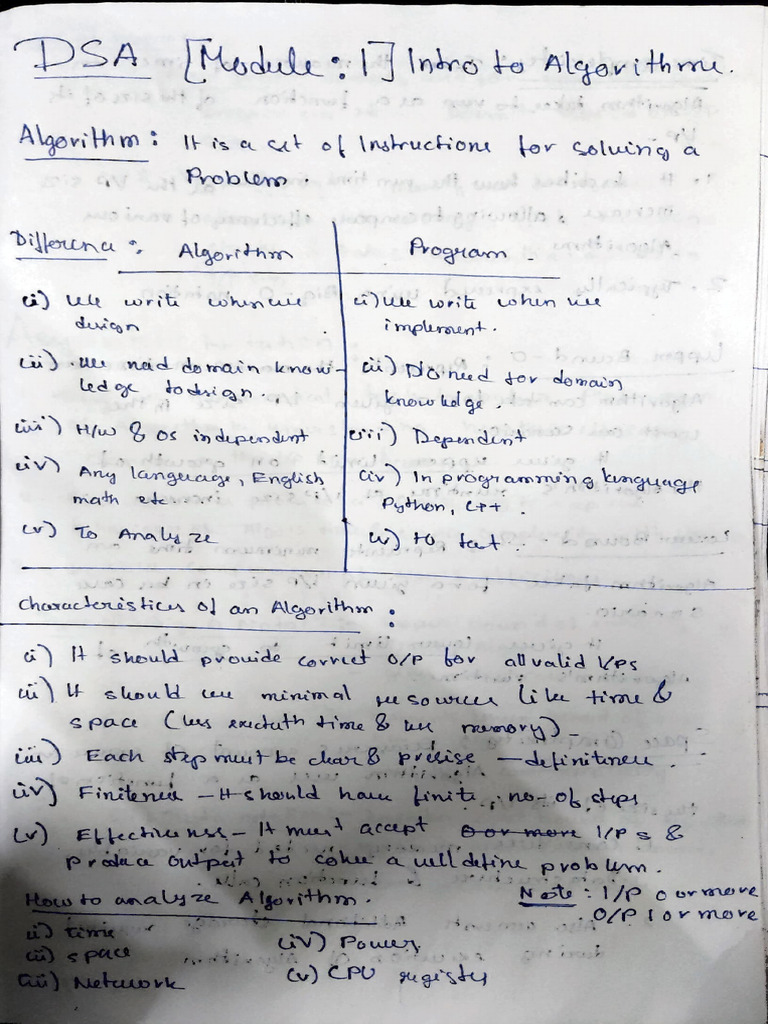 DSA [Module : 1] Intro to Algorithms.
Algorithm : It is a set of Instructions for solving a
Problem.
Difference : Algorithm
Program
(i) We write when we
design
(i) We write when we
implement.
(ii) We need domain know-
ledge to design.
(ii) No need for domain
knowledge.
(iii) H/W & OS independent
(iii) Dependent
(iv) Any language, English
math etc
(iv) In programming language
Python, C++.
(v) To Analyze
(v) to, test
Characteristics of an Algorithm :
(i) It should provide correct O/P for all valid I/Ps
(ii) It should use minimal resources like time &
space (less time & less memory)
(iii) Each step must be clear & precise — definiteness.
(iv) Finiteness — It should have finite, no- of steps
(v) Effectiveness — It must accept 0 or more I/P s &
produce output to solve a well define problem.
How to analyze Algorithm.
Note : I/P 0 or more
O/P 1 or more
(i) time
(ii) space
(iii) Network
(iv) Power
(v) CPU register